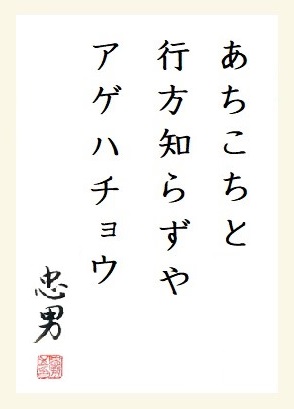 あちこちと
行方知らずや
アゲハチョウ
忠男